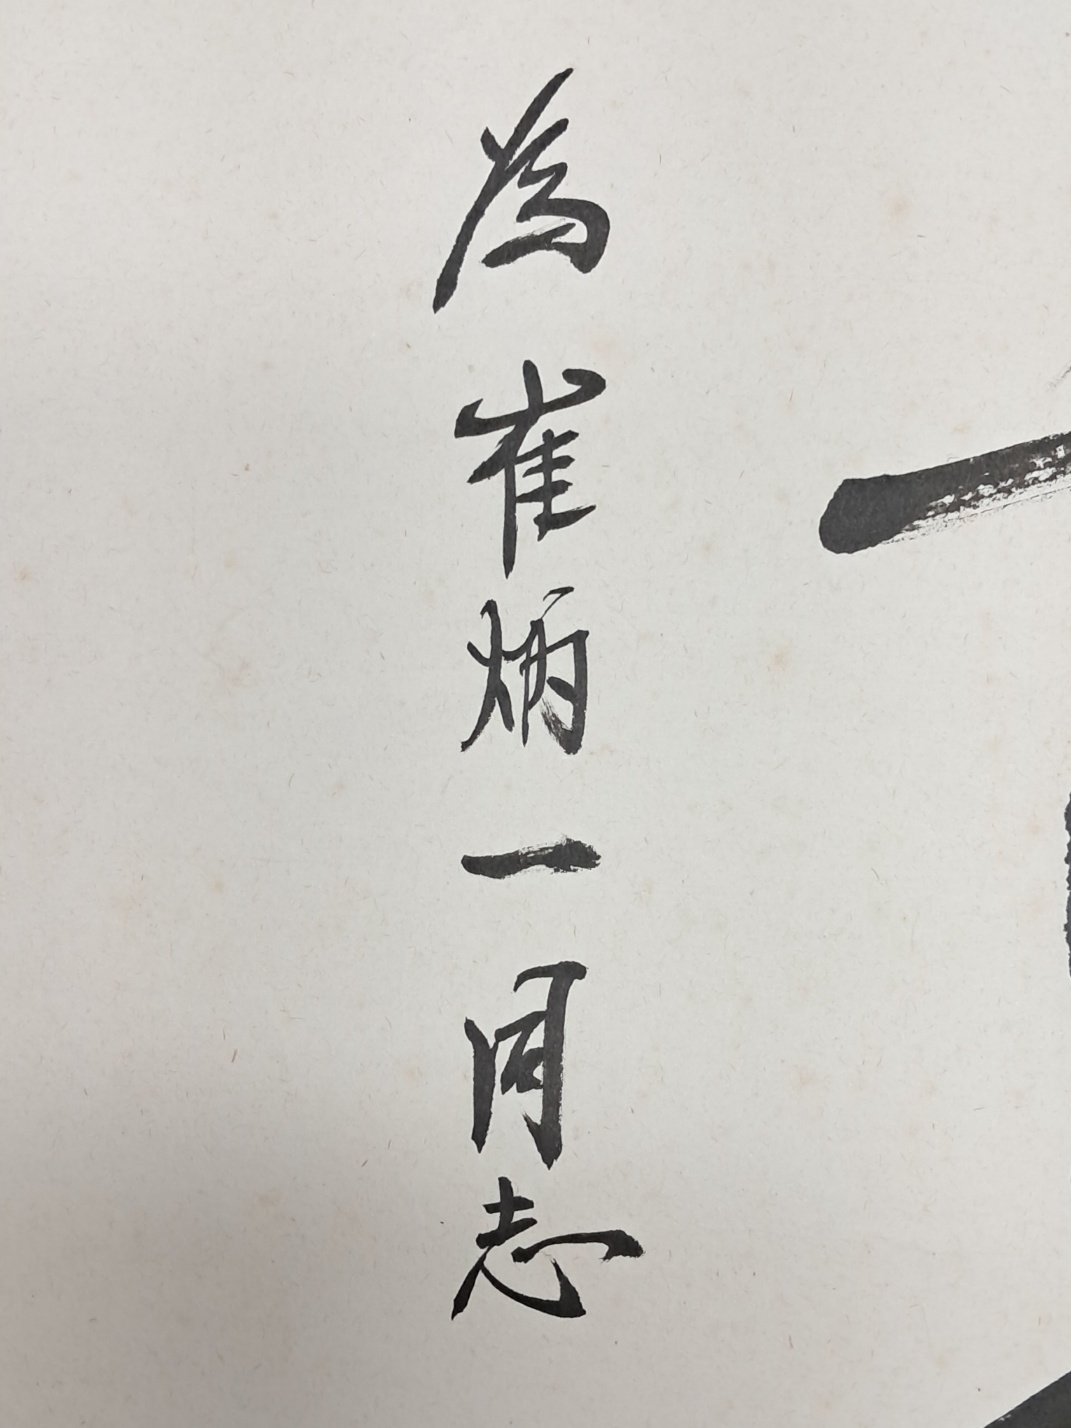 為崔炳一同志